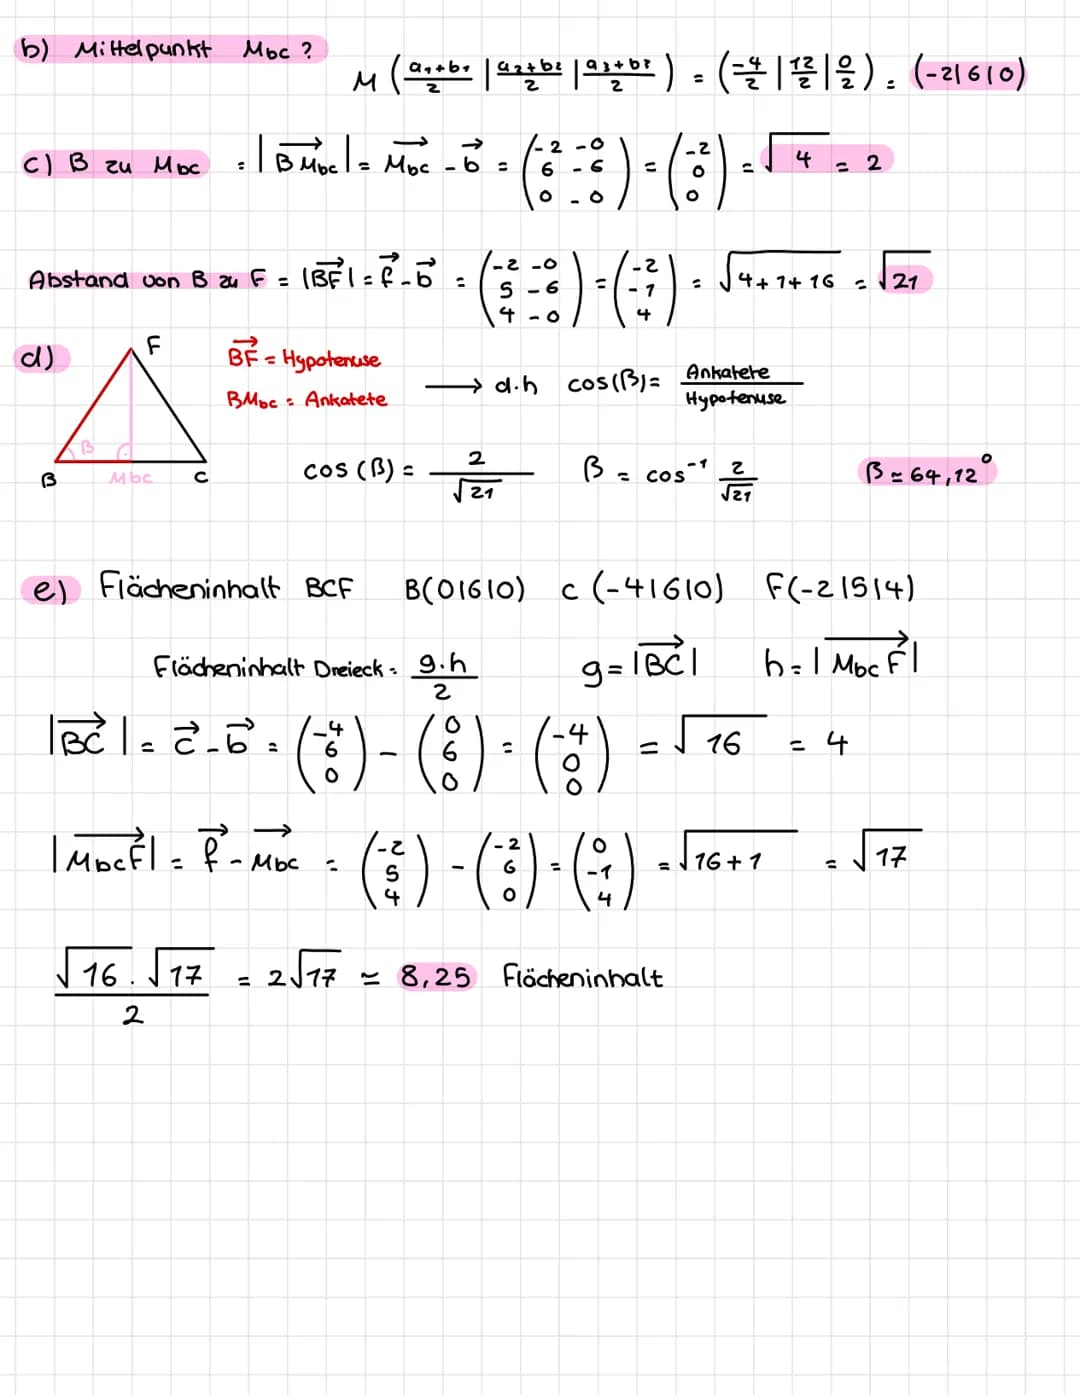 b) Mittelpunkt Mbc ?
M ( (a₁+b₁)/2 | (a₂+b₂)/2 | (a₃+b₃)/2 ) = ( -4/2 | 12/2 | 0/2 ) = (-2|6|0)
c) B zu Mbc = |BMbc| = Mbc - b = (-2 -0; 6 -6; 0 -0) = (-2; 0; 0) = √4 = 2
Abstand von B zu F = |BF| = f - b = (-2 -0; 5 -6; 4 -0) = (-2; -1; 4) = √4+1+16 = √21
d)
F
B
β
Mbc
C
BF = Hypotenuse
BMbc = Ankatete
→ d.h cos(β) = Ankatete/Hypotenuse
cos(β) = 2/√21 β = cos⁻¹ 2/√21 β ≃ 64,12°
e) Flächeninhalt BCF B(0|6|0) C(-4|6|0) F(-2|5|4)
Flächeninhalt Dreieck = g·h/2 g = |BC| h = |MbcF|
|BC| = c - b = (-4; 6; 0) - (0; 6; 0) = (-4; 0; 0) = √16 = 4
|MbcF| = f - Mbc = (-2; 5; 4) - (-2; 6; 0) = (0; -1; 4) = √16+1 = √17
√16 · √17 / 2 = 2√17 ≃ 8,25 Flächeninhalt